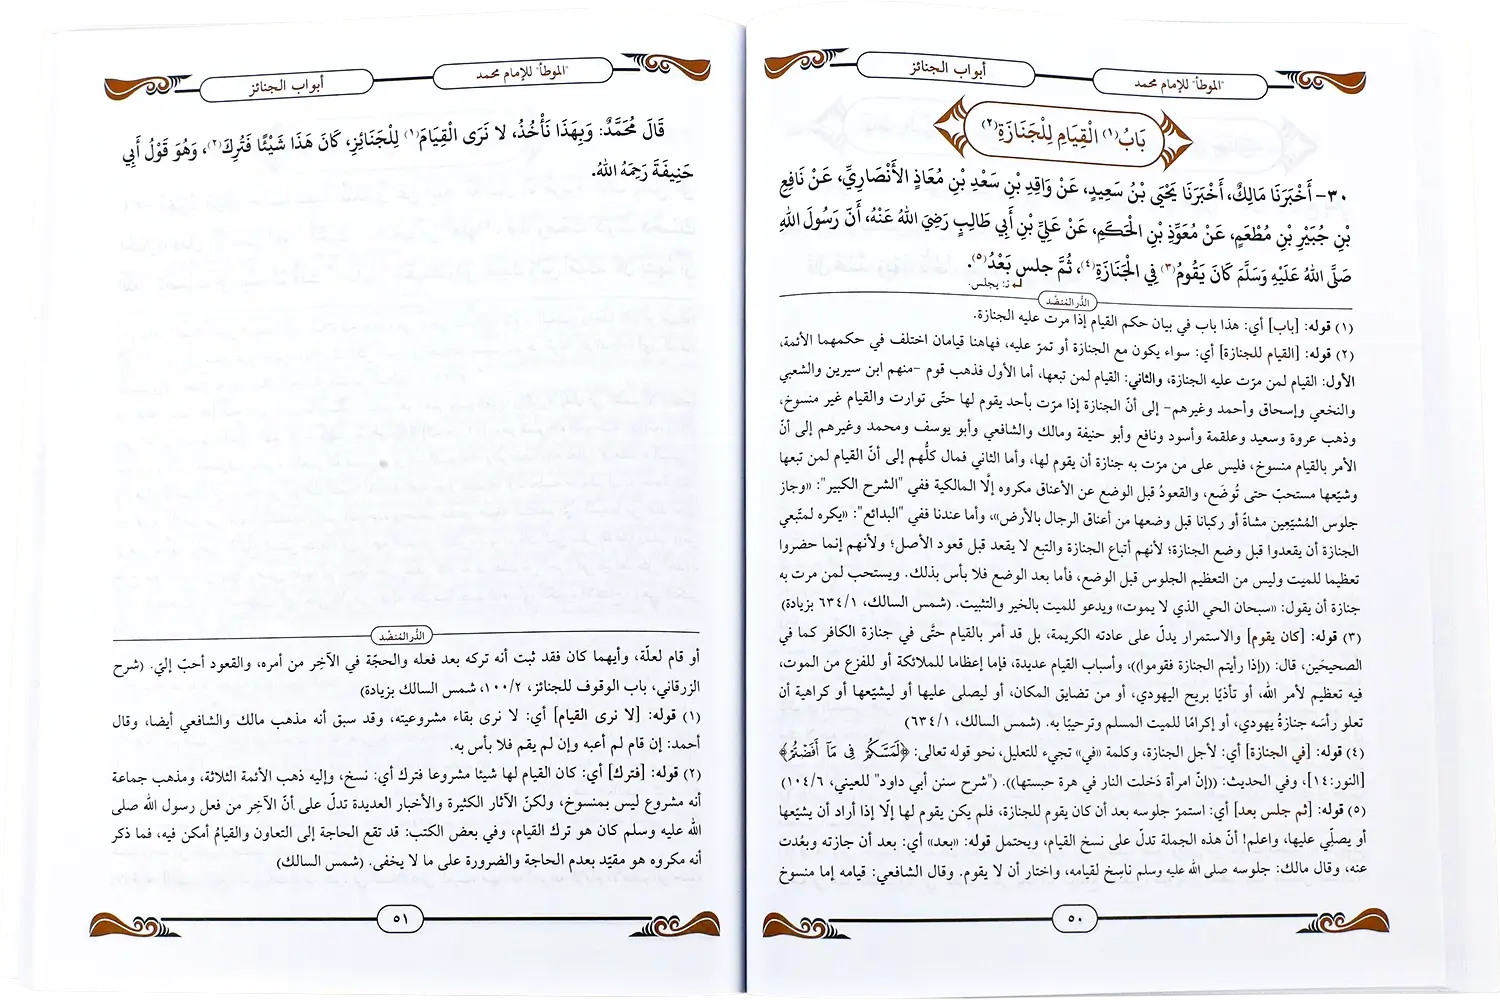 أبواب الجنائز
"الموطأ" للإمام محمد
بَابُ(١) الْقِيَامِ لِلْجَنَازَةِ(٢)
٣٠- أَخْبَرَنَا مَالِكٌ، أَخْبَرَنَا يَحْيَى بْنُ سَعِيدٍ، عَنْ وَاقِدِ بْنِ سَعْدِ بْنِ مُعَاذٍ الأَنْصَارِيِّ، عَنْ نَافِعِ
بْنِ جُبَيْرِ بْنِ مُطْعَمٍ، عَنْ مُعَوِّذِ بْنِ الْحَكَمِ، عَنْ عَلِيِّ بْنِ أَبِي طَالِبٍ رَضِيَ اللهُ عَنْهُ، أَنَّ رَسُولَ اللهِ
صَلَّى اللهُ عَلَيْهِ وَسَلَّمَ كَانَ يَقُومُ(٣) فِي الْجَنَازَةِ(٤)، ثُمَّ جلس بَعْدُ(٥).
نـ: يجلس.
الدُّر المُنضَّد
(١) قوله: [باب] أي: هذا باب في بيان حكم القيام إذا مرت عليه الجنازة.
(٢) قوله: [القيام للجنازة] أي: سواء يكون مع الجنازة أو تمرّ عليه، فهاهنا قيامان اختلف في حكمهما الأئمة،
الأول: القيام لمن مرّت عليه الجنازة، والثاني: القيام لمن تبعها، أما الأول فذهب قوم -منهم ابن سيرين والشعبي
والنخعي وإسحاق وأحمد وغيرهم- إلى أنّ الجنازة إذا مرّت بأحد يقوم لها حتّى توارت والقيام غير منسوخ،
وذهب عروة وسعيد وعلقمة وأسود ونافع وأبو حنيفة ومالك والشافعي وأبو يوسف ومحمد وغيرهم إلى أنّ
الأمر بالقيام منسوخ، فليس على من مرّت به جنازة أن يقوم لها، وأما الثاني فمال كلُّهم إلى أنّ القيام لمن تبعها
وشيّعها مستحبّ حتى تُوضَع، والقعودُ قبل الوضع عن الأعناق مكروه إلَّا المالكية ففي "الشرح الكبير": «وجاز
جلوس المُشيّعِين مشاةً أو ركبانا قبل وضعها من أعناق الرجال بالأرض»، وأما عندنا ففي "البدائع": «يكره لمتّبعي
الجنازة أن يقعدوا قبل وضع الجنازة؛ لأنهم أتباع الجنازة والتبع لا يقعد قبل قعود الأصل؛ ولأنهم إنما حضروا
تعظيما للميت وليس من التعظيم الجلوس قبل الوضع، فأما بعد الوضع فلا بأس بذلك. ويستحب لمن مرت به
جنازة أن يقول: «سبحان الحي الذي لا يموت» ويدعو للميت بالخير والتثبيت. (شمس السالك، ٦٣٤/١ بزيادة)
(٣) قوله: [كان يقوم] والاستمرار يدلّ على عادته الكريمة، بل قد أمر بالقيام حتَّى في جنازة الكافر كما في
الصحيحَين، قال: ((إذا رأيتم الجنازة فقوموا))، وأسباب القيام عديدة، فإما إعظاما للملائكة أو للفزع من الموت،
فيه تعظيم لأمر الله، أو تأذيًا بريح اليهودي، أو من تضايق المكان، أو ليصلى عليها أو ليشيّعها أو كراهية أن
تعلو رأسَه جنازةُ يهودي، أو إكرامًا للميت المسلم وترحيبًا به. (شمس السالك، ٦٣٤/١)
(٤) قوله: [في الجنازة] أي: لأجل الجنازة، وكلمة «في» تجيء للتعليل، نحو قوله تعالى: ﴿لَمَسَّكُمْ فِى مَآ أَفَضْتُمْ﴾
[النور:١٤]، وفي الحديث: ((إنّ امرأة دَخلت النار في هرة حبستها)). ("شرح سنن أبي داود" للعيني، ١٠٤/٦)
(٥) قوله: [ثم جلس بعد] أي: استمرّ جلوسه بعد أن كان يقوم للجنازة، فلم يكن يقوم لها إلّا إذا أراد أن يشيّعها
أو يصلّي عليها، واعلم! أنّ هذه الجملة تدلّ على نسخ القيام، ويحتمل قوله: «بعد» أي: بعد أن جازته وبعُدت
عنه، وقال مالك: جلوسه صلى الله عليه وسلم ناسِخ لقيامه، واختار أن لا يقوم. وقال الشافعي: قيامه إما منسوخ
٥٠
أبواب الجنائز
"الموطأ" للإمام محمد
قَالَ مُحَمَّدٌ: وَبِهَذَا نَأْخُذُ، لا نَرَى الْقِيَامَ(١) لِلْجَنَائِزِ، كَانَ هَذَا شَيْئًا فَتُرِكَ(٢)، وَهُوَ قَوْلُ أَبِي
حَنِيفَةَ رَحِمَهُ اللهُ.
الدُّر المُنضَّد
أو قام لعلّة، وأيهما كان فقد ثبت أنه تركه بعد فعله والحجّة في الآخِر من أمره، والقعود أحبّ إليّ. (شرح
الزرقاني، باب الوقوف للجنائز، ١٠٠/٢، شمس السالك بزيادة)
(١) قوله: [لا نرى القيام] أي: لا نرى بقاء مشروعيته، وقد سبق أنه مذهب مالك والشافعي أيضا، وقال
أحمد: إن قام لم أعبه وإن لم يقم فلا بأس به.
(٢) قوله: [فترك] أي: كان القيام لها شيئا مشروعا فترك أي: نسخ، وإليه ذهب الأئمة الثلاثة، ومذهب جماعة
أنه مشروع ليس بمنسوخ، ولكنّ الآثار الكثيرة والأخبار العديدة تدلّ على أنّ الآخِر من فعل رسول الله صلى
الله عليه وسلم كان هو ترك القيام، وفي بعض الكتب: قد تقع الحاجة إلى التعاون والقيامُ أمكن فيه، فما ذكر
أنه مكروه هو مقيّد بعدم الحاجة والضرورة على ما لا يخفى. (شمس السالك)
٥١